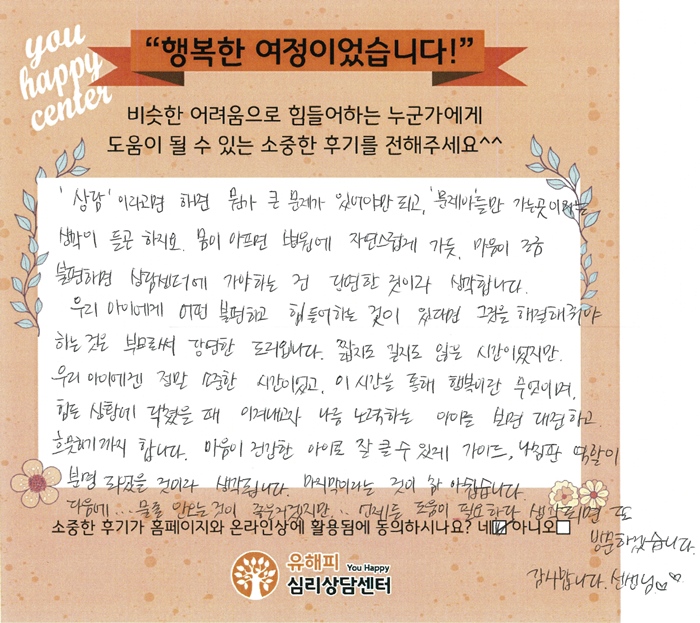 you
happy
center
“행복한 여정이었습니다!”
비슷한 어려움으로 힘들어하는 누군가에게
도움이 될 수 있는 소중한 후기를 전해주세요^^
'상담' 이라고면 해면 뭔가 큰 문제가 있어야만 되고, '문제아'들만 가는곳이라는
생각이 들곤 하지요. 몸이 아프면 병원에 자연스럽게 가듯, 마음이 조금
불편하면 상담센터에 가야하는 건 당연한 것이라 생각합니다.
우리 아이에게 어떤 불편하고 힘들어하는 것이 있다면 그것을 해결해줘야
하는것은 부모로써 당연한 도리입니다. 짧지도 길지도 않은 시간이었지만,
우리 아이에겐 정말 소중한 시간이었고, 이 시간을 통해 행복이란 무엇이며,
힘든 상황에 닥쳤을 때 이겨내고자 나름 노력하는 아이를 보면 대견하고
흐뭇하기까지 합니다. 마음이 건강한 아이로 잘 클 수 있게 가이드, 나침판 역할이
분명 되었을 것이라 생각됩니다. 마지막이라는 것이 참 아쉽습니다.
다음에... 물론 안오는것이 좋겠지만.. 언제든 도움이 필요하다 생각되면 또
방문하겠습니다.
감사합니다. 선생님♡♡
소중한 후기가 홈페이지와 온라인상에 활용됨에 동의하시나요? 네☑ 아니오☐
유해피 You Happy
심리상담센터